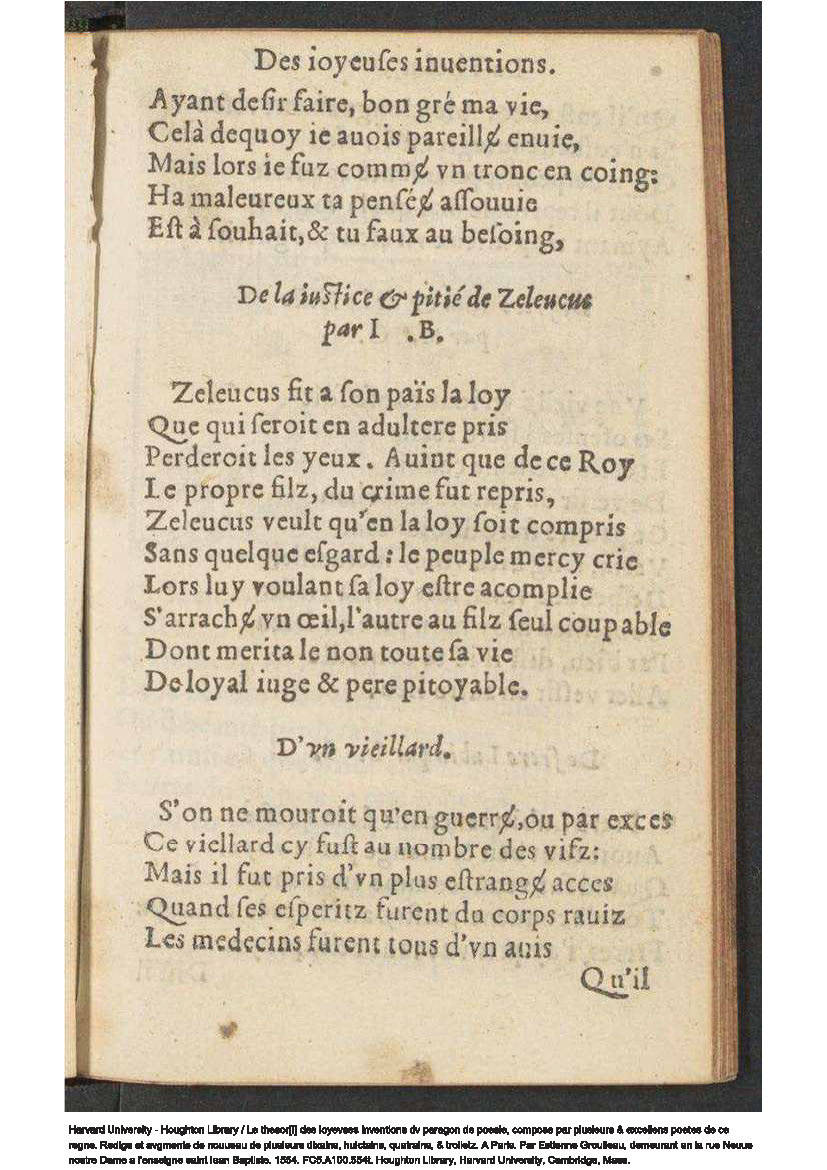 Des ioyeuſes inuentions.
Ayant deſir faire, bon gré ma vie,
Celà dequoy ie auois pareillɇ enuie,
Mais lors ie fuz commɇ vn tronc en coing:
Ha maleureux ta penſéɇ aſſouuie
Eſt à ſouhait, & tu faux au beſoing,
De la iuſtice & pitié de Zeleucus
par I .B.
Zeleucus fit a ſon païs la loy
Que qui ſeroit en adultere pris
Perderoit les yeux. Auint que de ce Roy
Le propre filz, du crime fut repris,
Zeleucus veult qu'en la loy ſoit compris
Sans quelque eſgard : le peuple mercy crie
Lors luy voulant ſa loy eſtre acomplie
S'arrachɇ vn œil, l'autre au filz ſeul coupable
Dont merita le non toute ſa vie
De loyal iuge & pere pitoyable.
D'vn vieillard.
S'on ne mouroit qu'en guerrɇ, ou par exces
Ce viellard cy fuſt au nombre des vifz:
Mais il fut pris d'vn plus eſtrangɇ acces
Quand ſes eſperitz furent du corps rauiz
Les medecins furent tous d'vn auis
Qu'il
Harvard University - Houghton Library / Le thesor[i] des ioyevses inventions dv paragon de poesie, compose par plusieurs & excellens poetes de ce
regne. Redige et avgmente de nouueau de plusieurs dixains, huictains, quatrains, & trioletz. A Paris. Par Estienne Groulleau, demeurant en la rue Neuue
nostre Dame a l'enseigne saint Iean Baptiste. 1554. FC5.A100.554t. Houghton Library, Harvard University, Cambridge, Mass.